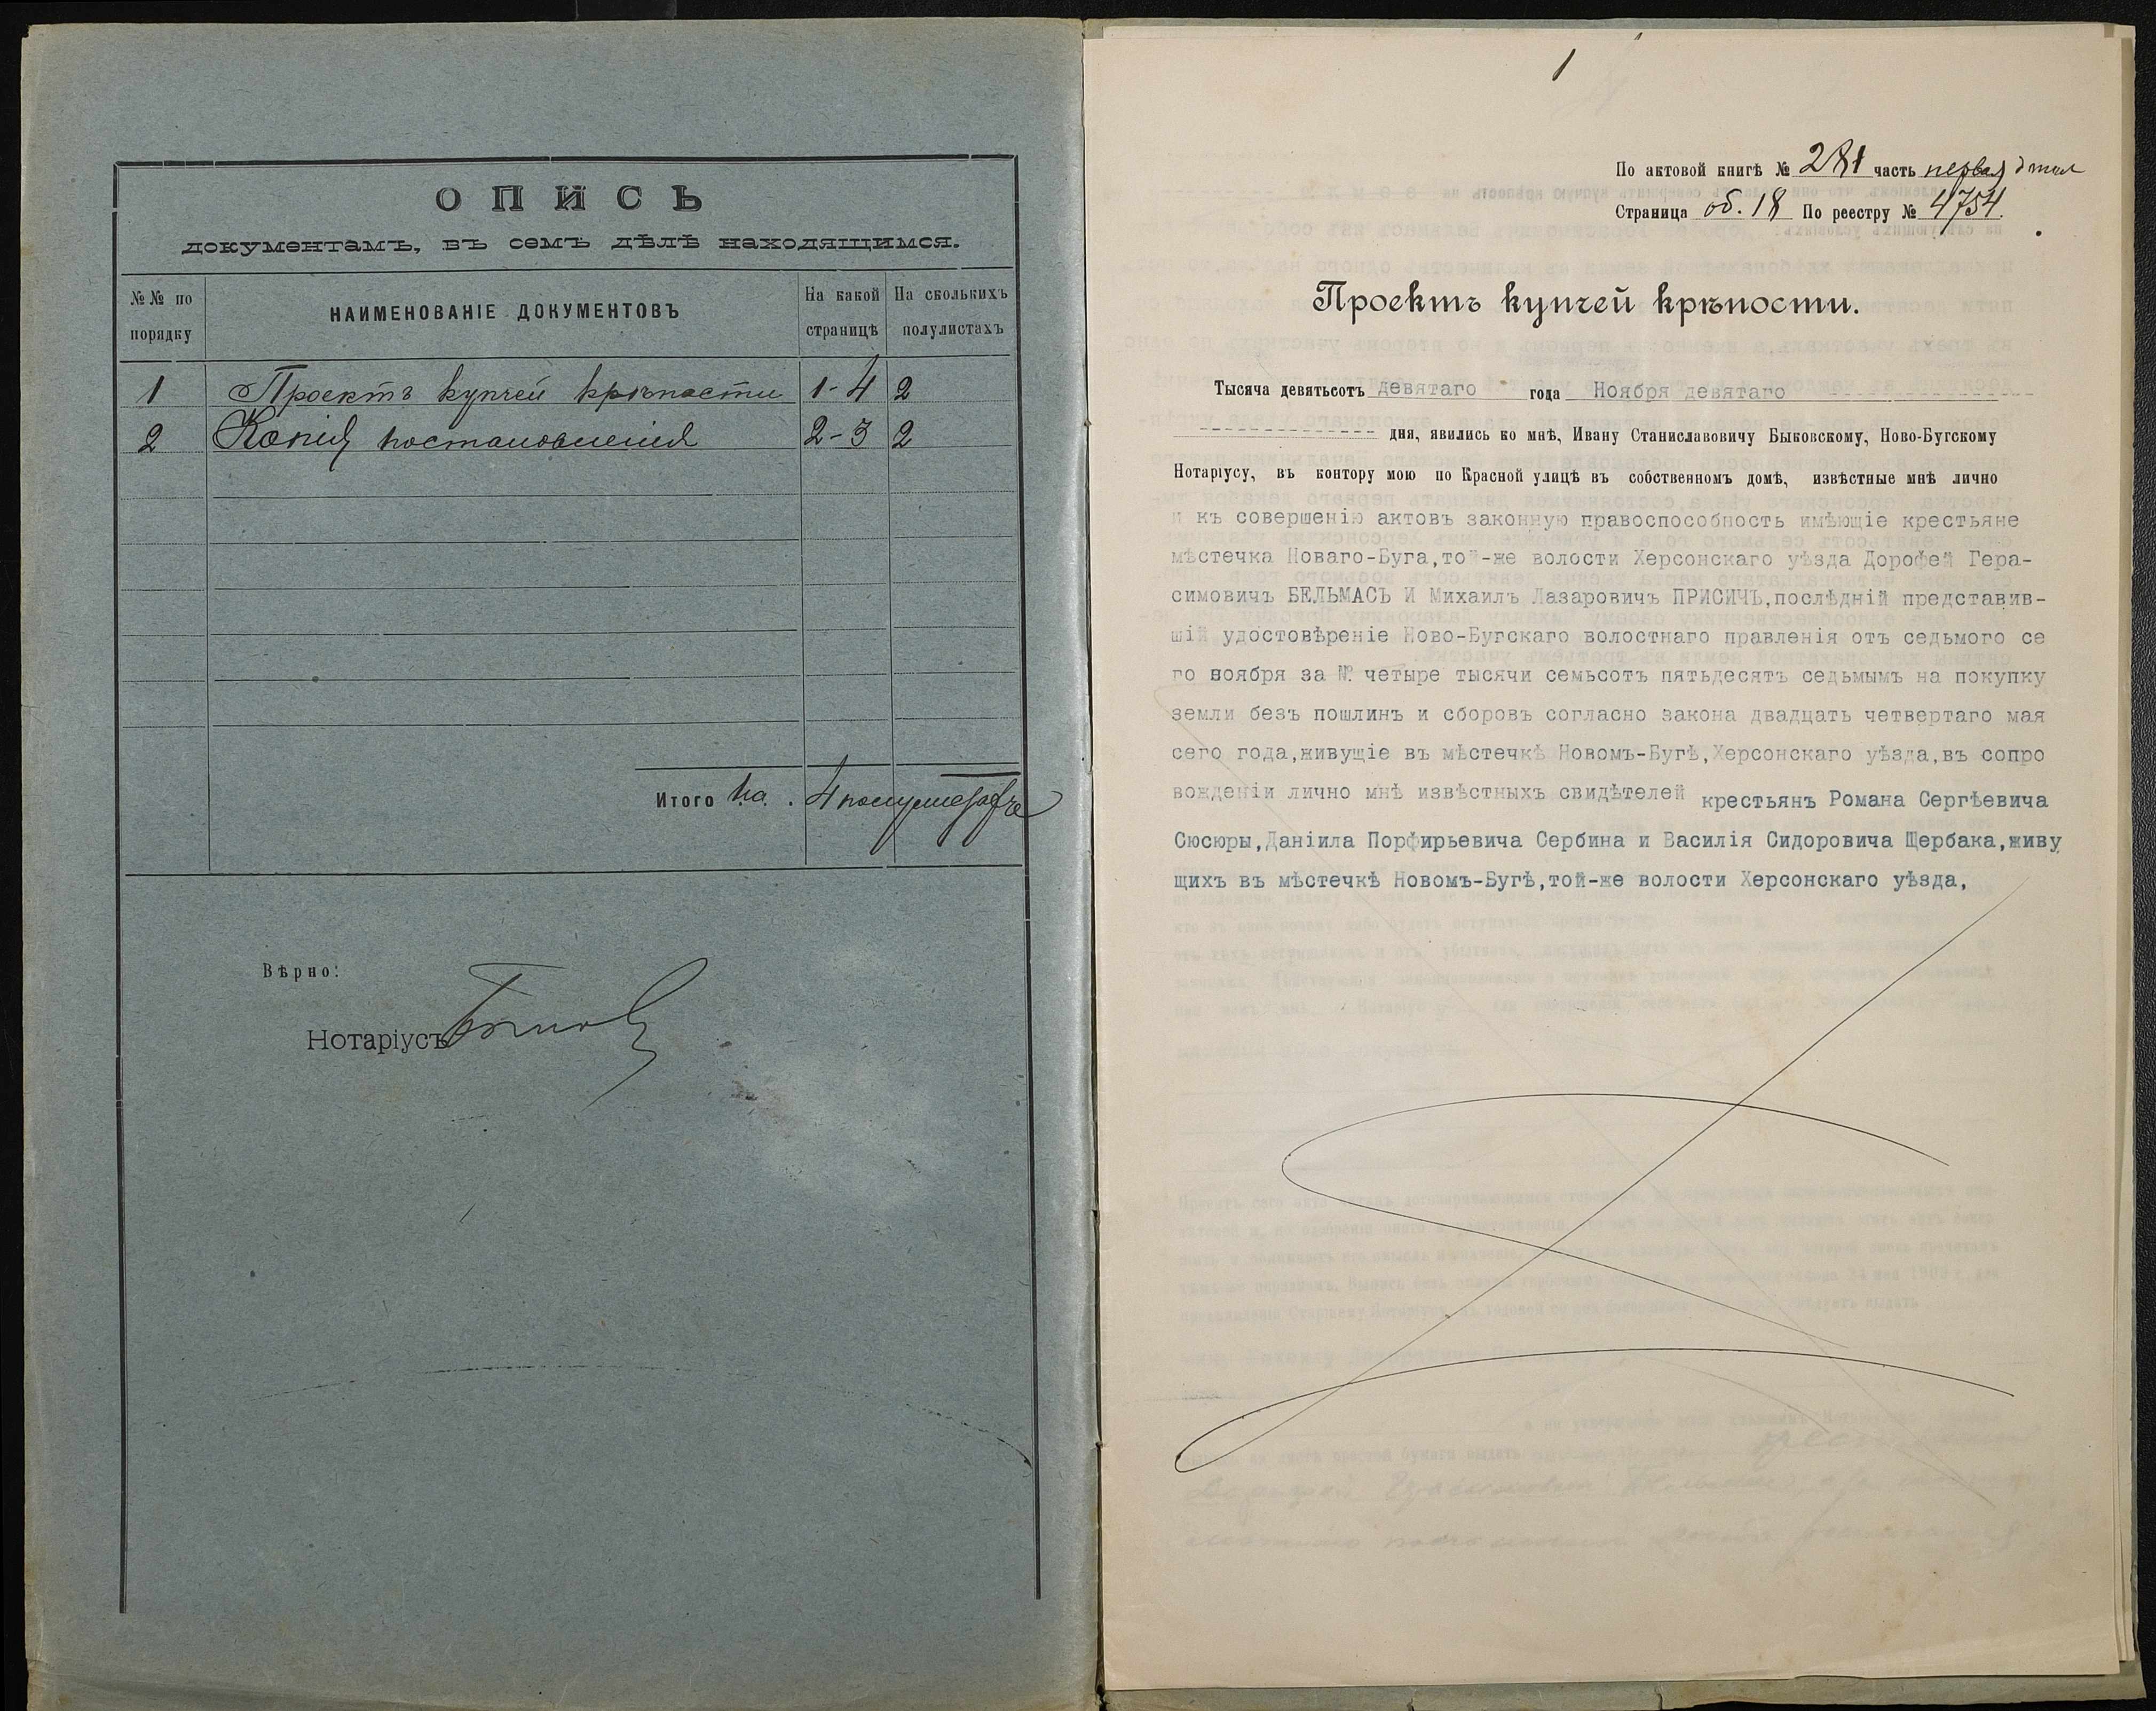 ОПИСЬ
документамъ, въ семъ дѣлѣ находящимся.
№№ по порядку
НАИМЕНОВАНІЕ ДОКУМЕНТОВЪ
На какой страницѣ
На сколькихъ полулистахъ
1 Проектъ купчей крѣпости 1-4 2
2 Копія постановленія 2-3 2
Итого на 4
Вѣрно:
Нотаріусъ
1
По актовой книгѣ № 281 часть первая
Страница об. 18 По реестру № 4754.
Проектъ купчей крѣпости.
Тысяча девятьсотъ девятаго года Ноября девятаго
дня, явились ко мнѣ, Ивану Станиславовичу Быковскому, Ново-Бугскому
Нотаріусу, въ контору мою по Красной улицѣ въ собственномъ домѣ, извѣстные мнѣ лично
и къ совершенію актовъ законную правоспособность имѣющіе крестьяне
мѣстечка Новаго-Буга,той-же волости Херсонскаго уѣзда Дорофей Гера-
симовичъ БЕЛЬМАСЪ И Михаилъ Лазаровичъ ПРИСИЧЪ,послѣдній представив-
шій удостовѣреніе Ново-Бугскаго волостнаго правленія отъ седьмого се
го ноября за № четыре тысячи семьсотъ пятьдесятъ седьмымъ на покупку
земли безъ пошлинъ и сборовъ согласно закона двадцать четвертаго мая
сего года,живущіе въ мѣстечкѣ Новомъ-Бугѣ,Херсонскаго уѣзда,въ сопро
вожденіи лично мнѣ извѣстныхъ свидѣтелей крестьянъ Романа Сергѣевича
Сюсюры,Даніила Порфирьевича Сербина и Василія Сидоровича Щербака,живу
щихъ въ мѣстечкѣ Новомъ-Бугѣ,той-же волости Херсонскаго уѣзда,